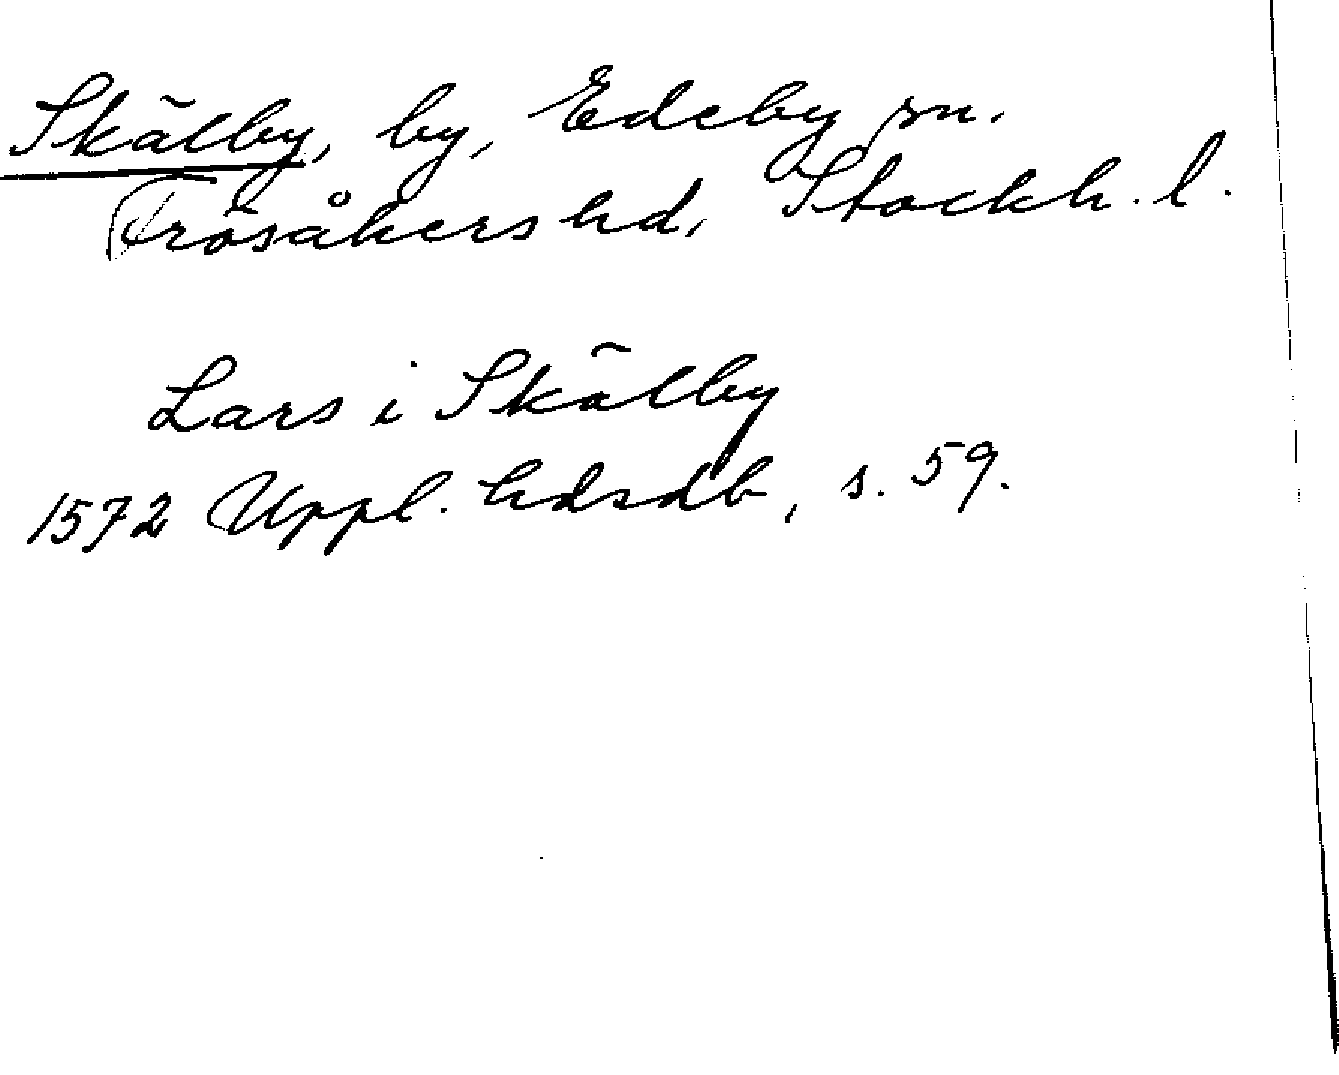 Skälby, by, Edeby sn.
Frösåkers hd, Stockh. l.
Lars i Skälby
1572 Uppl. hdsdb, s. 59.